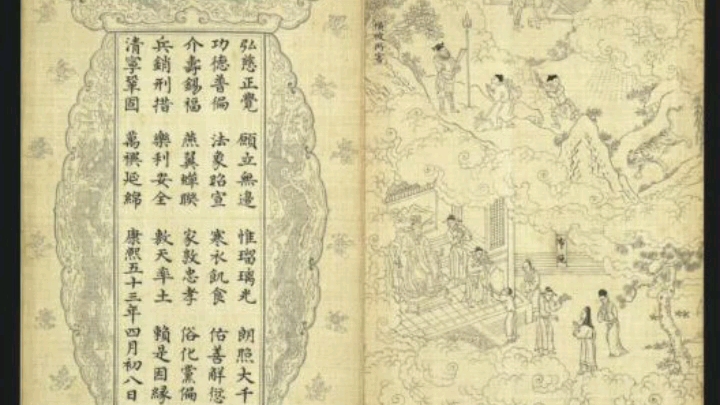 弘慈正覺 願立無邊 惟瑠璃光 朗照大千
功德普徧 法象昭宣 寒衣飢食 佑善解愆
介壽錫福 燕翼蟬聯 家敦忠孝 俗化黨偏
兵銷刑措 樂利安全 敷天率土 賴是因縁
清寧鞏固 萬禩延綿 康熙五十三年四月初八日